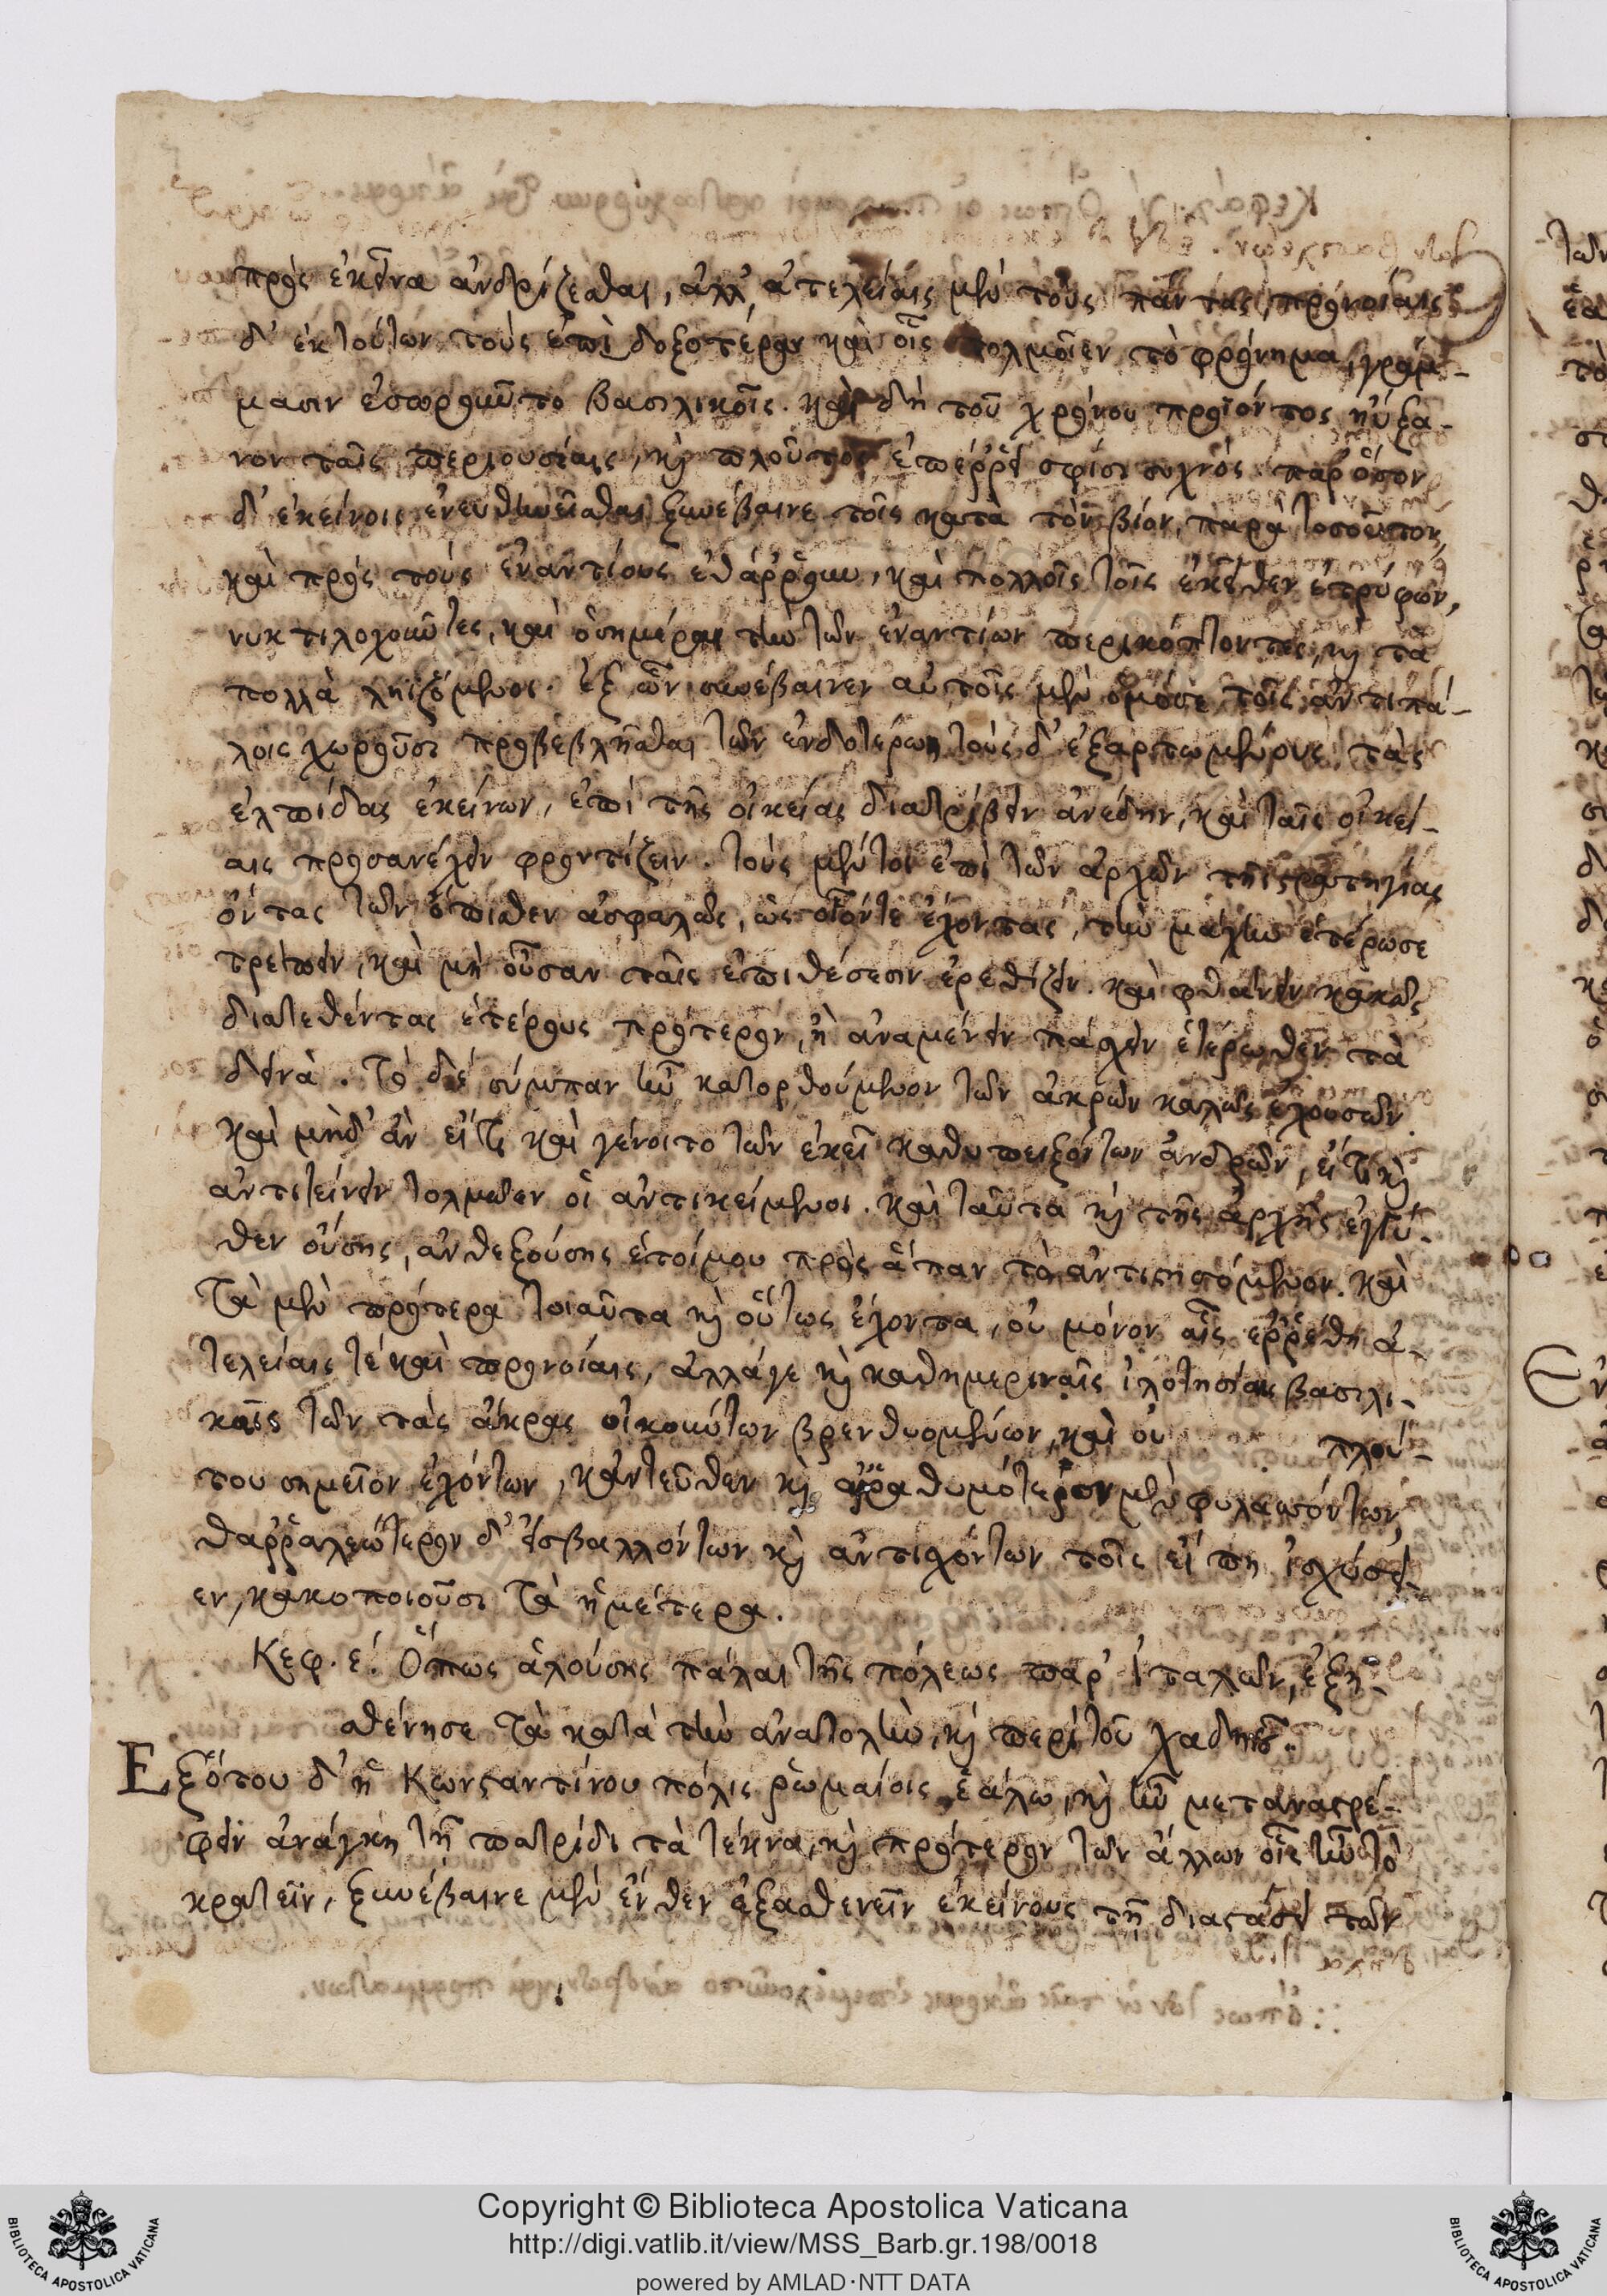 πρὸς ἐκεῖνα ἀνδρίζεσθαι, ἀλλ' ἀτελείαις μὲν τοὺς πάντας, προνοίαις
δ' ἐκ τούτων τοὺς ἐπιδοξοτέρους καὶ οἷς τολμῷεν τὸ φρόνημα, γράμ-
μασιν ἐδωροῦντο βασιλικοῖς. καὶ δὴ τοῦ χρόνου προϊόντος ηὔξα-
νον ταῖς περιουσίαις, καὶ πλοῦτος ἐπέρρει σφίσι συχνός. παρ' ὅσον
δ' ἐκείνοις ἐνευθηνεῖσθαι ξυνέβαινε τοῖς κατὰ τὸν βίον, παρὰ τοσοῦτον
καὶ πρὸς τοὺς ἐναντίους ἐθάρρουν, καὶ πολλοῖς τοῖς ἐκεῖθεν ἐτρύφων,
νυκτιλοχοῦντες, καὶ ὁσημέραι τὴν τῶν ἐναντίων περικόπτοντες, καὶ τὰ
πολλὰ ληϊζόμενοι. ἐξ ὧν συνέβαινεν αὐτοῖς μὲν ὁμόσε τοῖς ἀντιπά-
λοις χωροῦσι προβεβλῆσθαι τῶν ἐνδοτέρων, τοὺς δ' ἐξαρτωμένους τὰς
ἐλπίδας ἐκείνων, ἐπὶ τῆς οἰκείας διατρίβειν ἀνέδην, καὶ ταῖς οἰκεί-
αις προσανέχειν φροντίζειν. τοὺς μέντοι ἐπὶ τῶν ἀρχῶν τῆς στρατηγίας
ὄντας τῶν ὄπισθεν ἀσφαλῶς, ὡς οἷόν τε ἔχοντας, τὴν μάχην ἑτέρωσε
τρέπειν, καὶ μὴ οὖσαν ταῖς ἐπιθέσεσιν ἐρεθίζειν. καὶ φθάνειν κακῶς
διατεθέντας ἑτέρους πρότερον, ἢ ἀναμένειν πάσχειν ἑτέρωθεν τὰ
δεινά. τὸ δὲ σύμπαν ἦν κατορθούμενον τῶν ἄκρων καλῶς ἐχουσῶν
καὶ μηδ' ἂν εἴ τι καὶ γένοιτο τῶν ἐκεῖ καθυπειξόντων ἀνδρῶν, εἴ τι καὶ
ἀντιτείνειν τολμῷεν οἱ ἀντικείμενοι. καὶ ταῦτα καὶ τῆς ἀρχῆς ἐγγύ-
θεν οὔσης, ἀνθεξούσης ἑτοίμου πρὸς ἅπαν τὸ ἀντιστησόμενον. καὶ
τὰ μὲν πρότερα τοιαῦτα καὶ οὕτως ἔχοντα, οὐ μόνον αἷς ἐρρέθη ἀ-
τελείαις τὲ καὶ προνοίαις, ἀλλάγε καὶ καθημεριναῖς φιλοτησίαις βασιλι-
καῖς τῶν τὰς ἄκρας οἰκούντων βρενθυομένων, καὶ οὐ πλού-
του σημεῖον ἐχόντων, κἀντεῦθεν καὶ ἀραθυμότερον μὲν φυλασσόντων,
θαρραλεώτερον δ' ἐσβαλλόντων καὶ ἀντισχόντων τοῖς εἴ πη ἰσχύσει-
εν, κακοποιοῦσι τὰ ἡμέτερα.
Κεφ. ε΄. Ὅπως ἁλούσης πάλαι τῆς πόλεως παρ' ἰταλῶν, ἐξη-
σθένησε τὰ κατὰ τὴν ἀνατολὴν, καὶ περὶ τοῦ χαδηνοῦ.
Ἐξότου δ' ἡ Κωνσταντίνου πόλις ῥωμαίοις ἑάλω, καὶ ἦν μεταναστρέ-
φειν ἀνάγκη τῇ πατρίδι τὰ τέκνα, καὶ πρότερον τῶν ἄλλων οἷς ἦν τὸ
κρατεῖν, ξυνέβαινε μὲν ἔνθεν ἐξασθενεῖν ἐκείνους τῇ διαστάσει τῶν
Copyright © Biblioteca Apostolica Vaticana
http://digi.vatlib.it/view/MSS_Barb.gr.198/0018
powered by AMLAD·NTT DATA
BIBLIOTECA APOSTOLICA VATICANA
BIBLIOTECA APOSTOLICA VATICANA